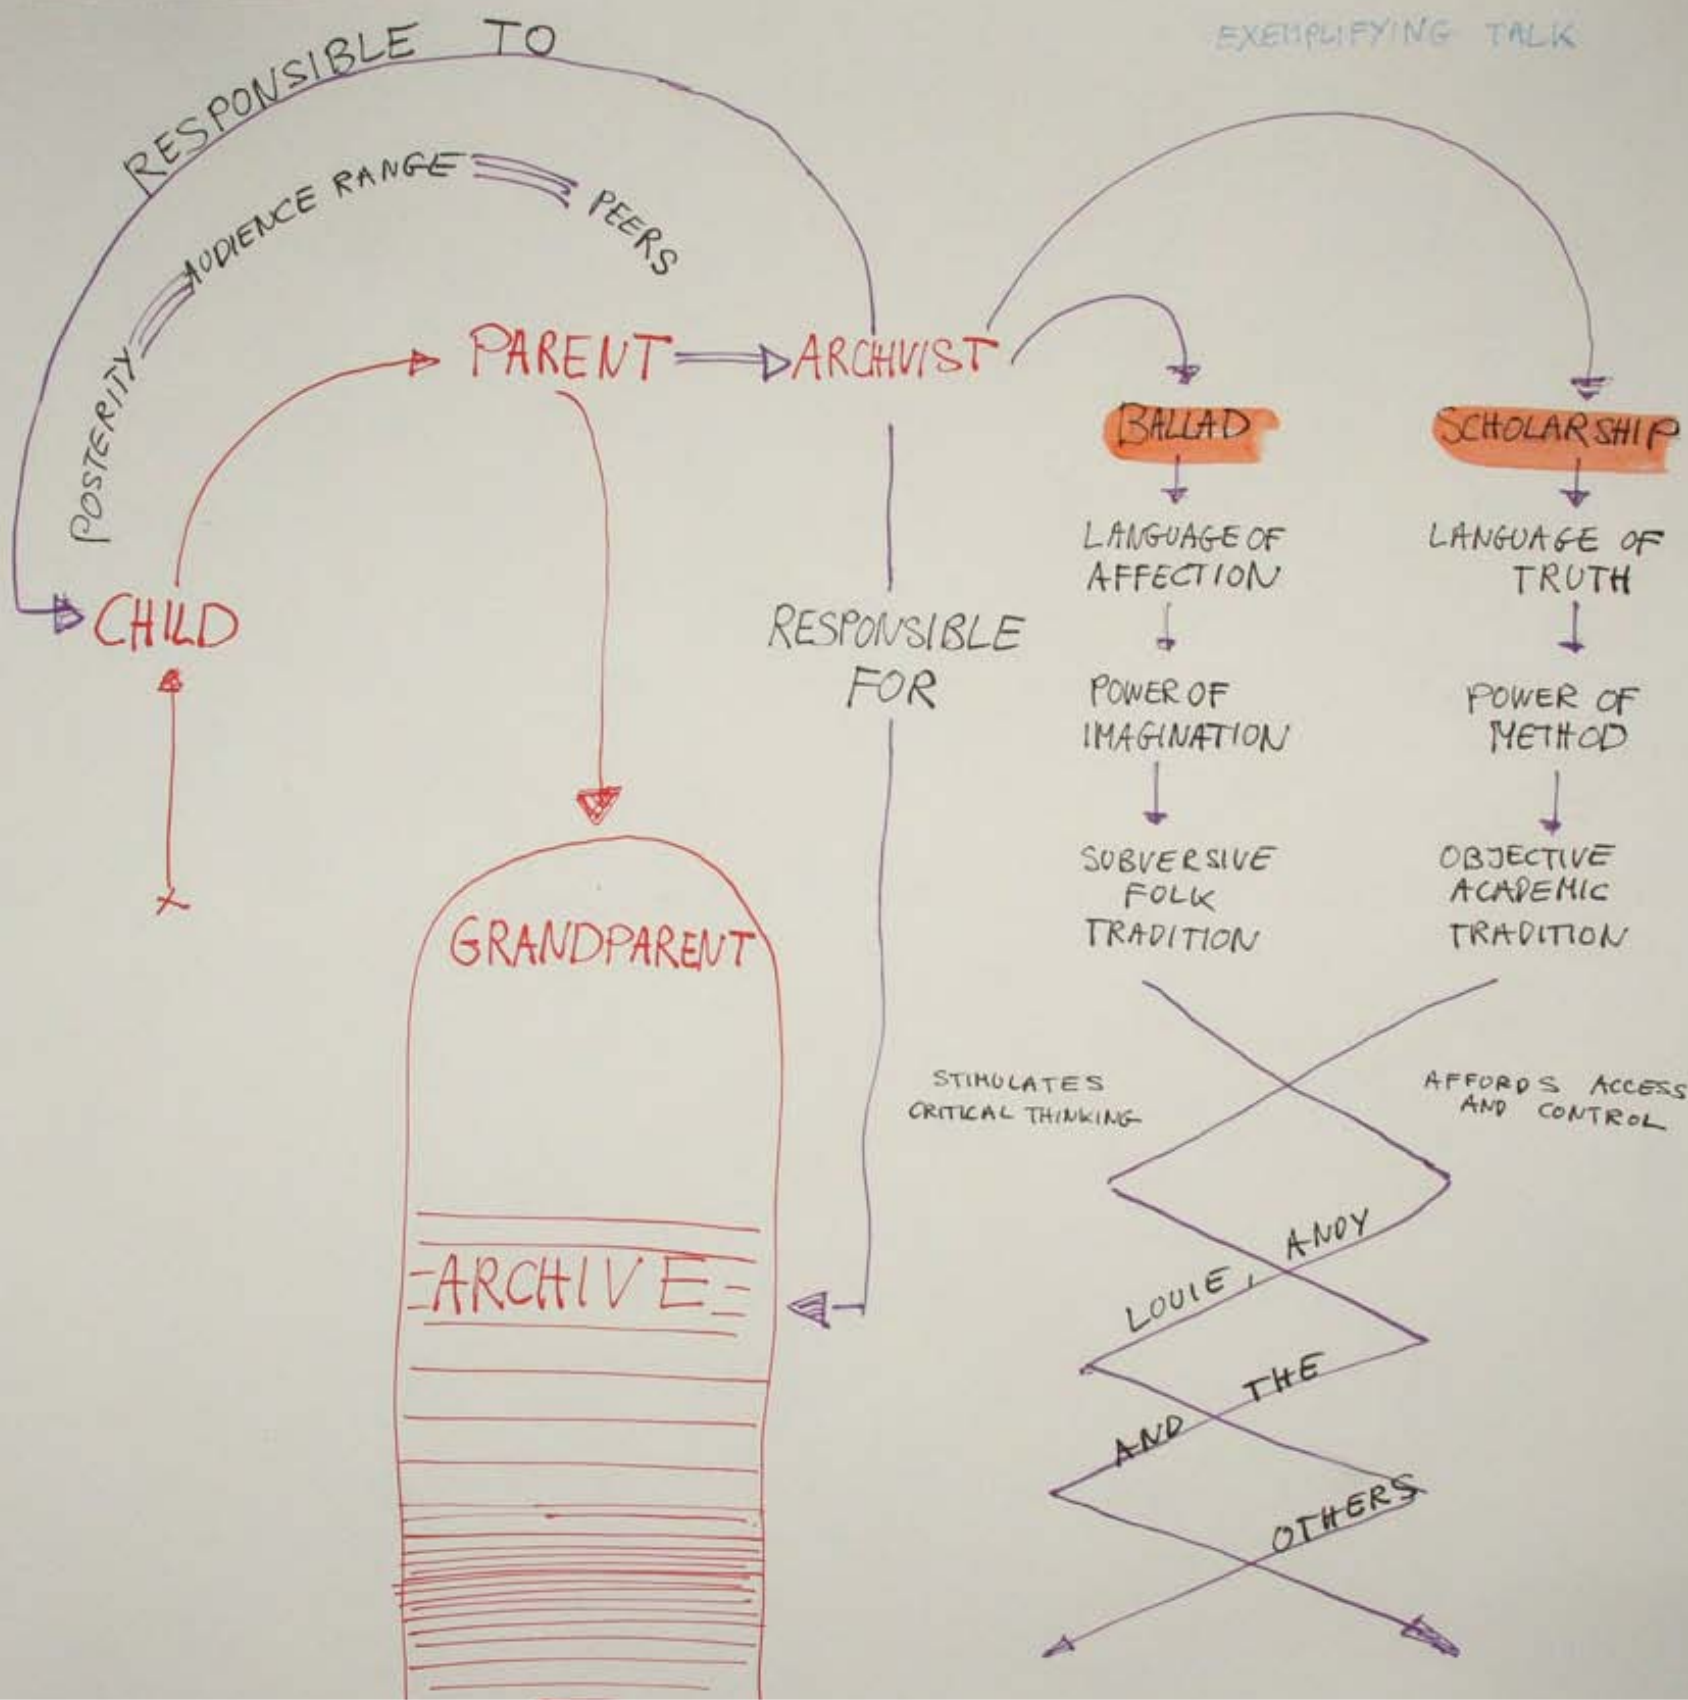 EXEMPLIFYING TALK
RESPONSIBLE TO
POSTERITY AUDIENCE RANGE PEERS
PARENT
ARCHVIST
CHILD
RESPONSIBLE
FOR
GRANDPARENT
ARCHIVE
BALLAD
LANGUAGE OF
AFFECTION
POWER OF
IMAGINATION
SUBVERSIVE
FOLK
TRADITION
SCHOLARSHIP
LANGUAGE OF
TRUTH
POWER OF
METHOD
OBJECTIVE
ACADEMIC
TRADITION
STIMULATES
CRITICAL THINKING
AFFORDS ACCESS
AND CONTROL
LOUIE, ANDY
AND THE
OTHERS